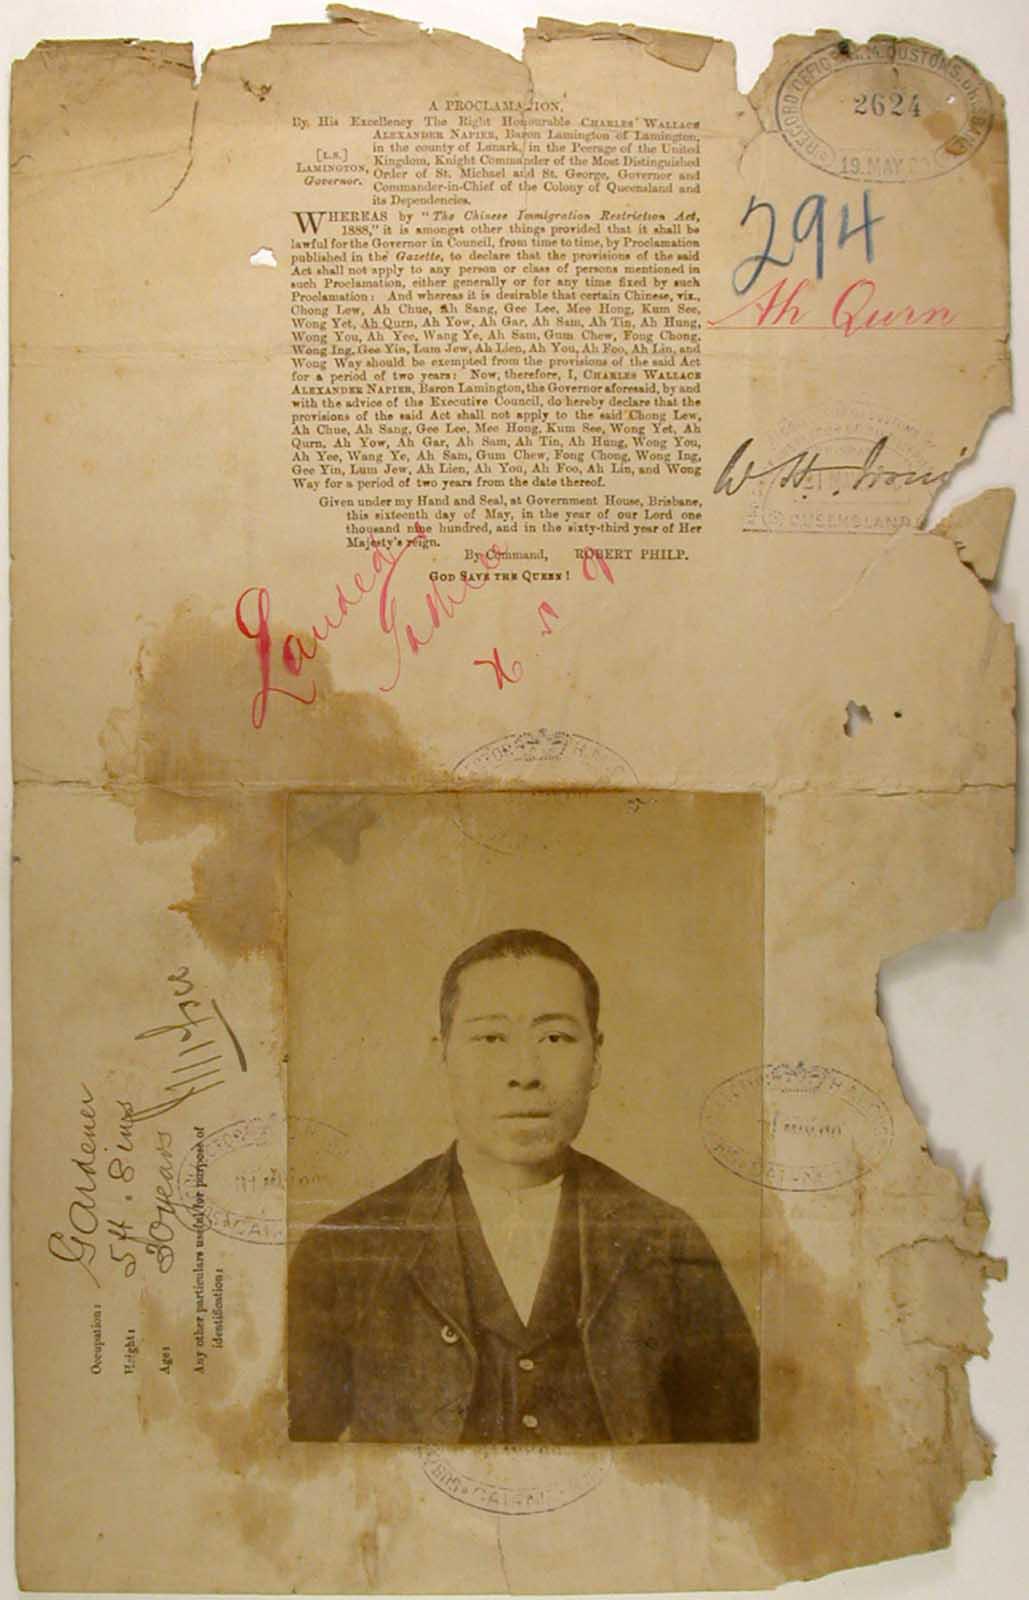 A PROCLAMATION.
By His Excellency The Right Honourable CHARLES WALLACE
ALEXANDER NAPIER, Baron Lamington of Lamington,
in the county of Lanark, in the Peerage of the United
[L.S.] Kingdom, Knight Commander of the Most Distinguished
LAMINGTON, Order of St. Michael and St. George, Governor and
Governor. Commander-in-Chief of the Colony of Queensland and
its Dependencies.
WHEREAS by "The Chinese Immigration Restriction Act,
1888," it is amongst other things provided that it shall be
lawful for the Governor in Council, from time to time, by Proclamation
published in the Gazette, to declare that the provisions of the said
Act shall not apply to any person or class of persons mentioned in
such Proclamation, either generally or for any time fixed by such
Proclamation: And whereas it is desirable that certain Chinese, viz.,
Chong Lew, Ah Chue, Ah Sang, Gee Lee, Mee Hong, Kum See,
Wong Yet, Ah Qurn, Ah Yow, Ah Gar, Ah Sam, Ah Tin, Ah Hung,
Wong You, Ah Yee, Wang Ye, Ah Sam, Gum Chew, Fong Chong,
Wong Ing, Gee Yin, Lum Jew, Ah Lien, Ah You, Ah Foo, Ah Lin, and
Wong Way should be exempted from the provisions of the said Act
for a period of two years: Now, therefore, I, CHARLES WALLACE
ALEXANDER NAPIER, Baron Lamington, the Governor aforesaid, by and
with the advice of the Executive Council, do hereby declare that the
provisions of the said Act shall not apply to the said Chong Lew,
Ah Chue, Ah Sang, Gee Lee, Mee Hong, Kum See, Wong Yet, Ah
Qurn, Ah Yow, Ah Gar, Ah Sam, Ah Tin, Ah Hung, Wong You,
Ah Yee, Wang Ye, Ah Sam, Gum Chew, Fong Chong, Wong Ing,
Gee Yin, Lum Jew, Ah Lien, Ah You, Ah Foo, Ah Lin, and Wong
Way for a period of two years from the date thereof.
Given under my Hand and Seal, at Government House, Brisbane,
this sixteenth day of May, in the year of our Lord one
thousand nine hundred, and in the sixty-third year of Her
Majesty's reign.
By Command, ROBERT PHILP.
GOD SAVE THE QUEEN!
RECORD OFFICE H.M. CUSTOMS. BRISBANE
2624
19. MAY
294
Ah Qurn
W H
QUEENSLAND
Landed
Occupation: Gardener
Height: 5 ft. 8 ins
Age: 30 years
Any other particulars useful for purpose of
identification:
CAIRNS